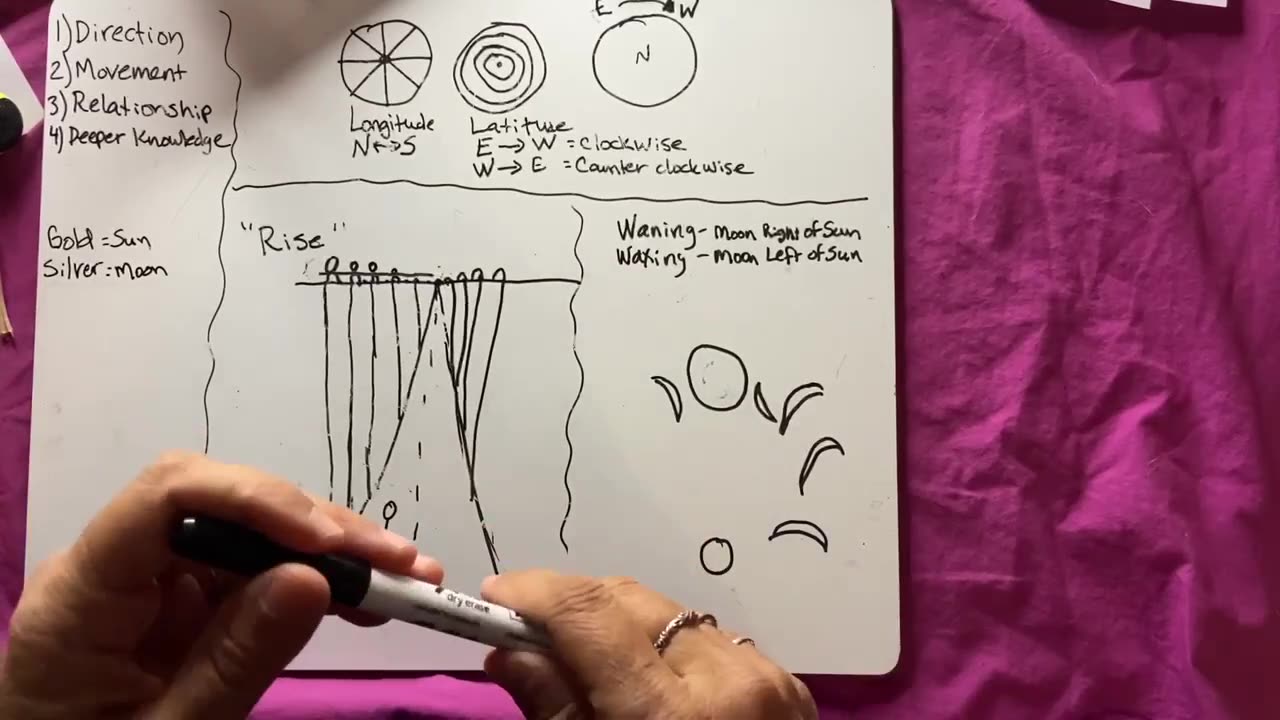 1) Direction
2) Movement
3) Relationship
4) Deeper Knowledge
E W
N
Longitude
N↔S
Latitude
E→W = clockwise
W→E = Counter clockwise
Gold = Sun
Silver = moon
"Rise"
Waning - Moon Right of Sun
Waxing - Moon Left of Sun
dry erase